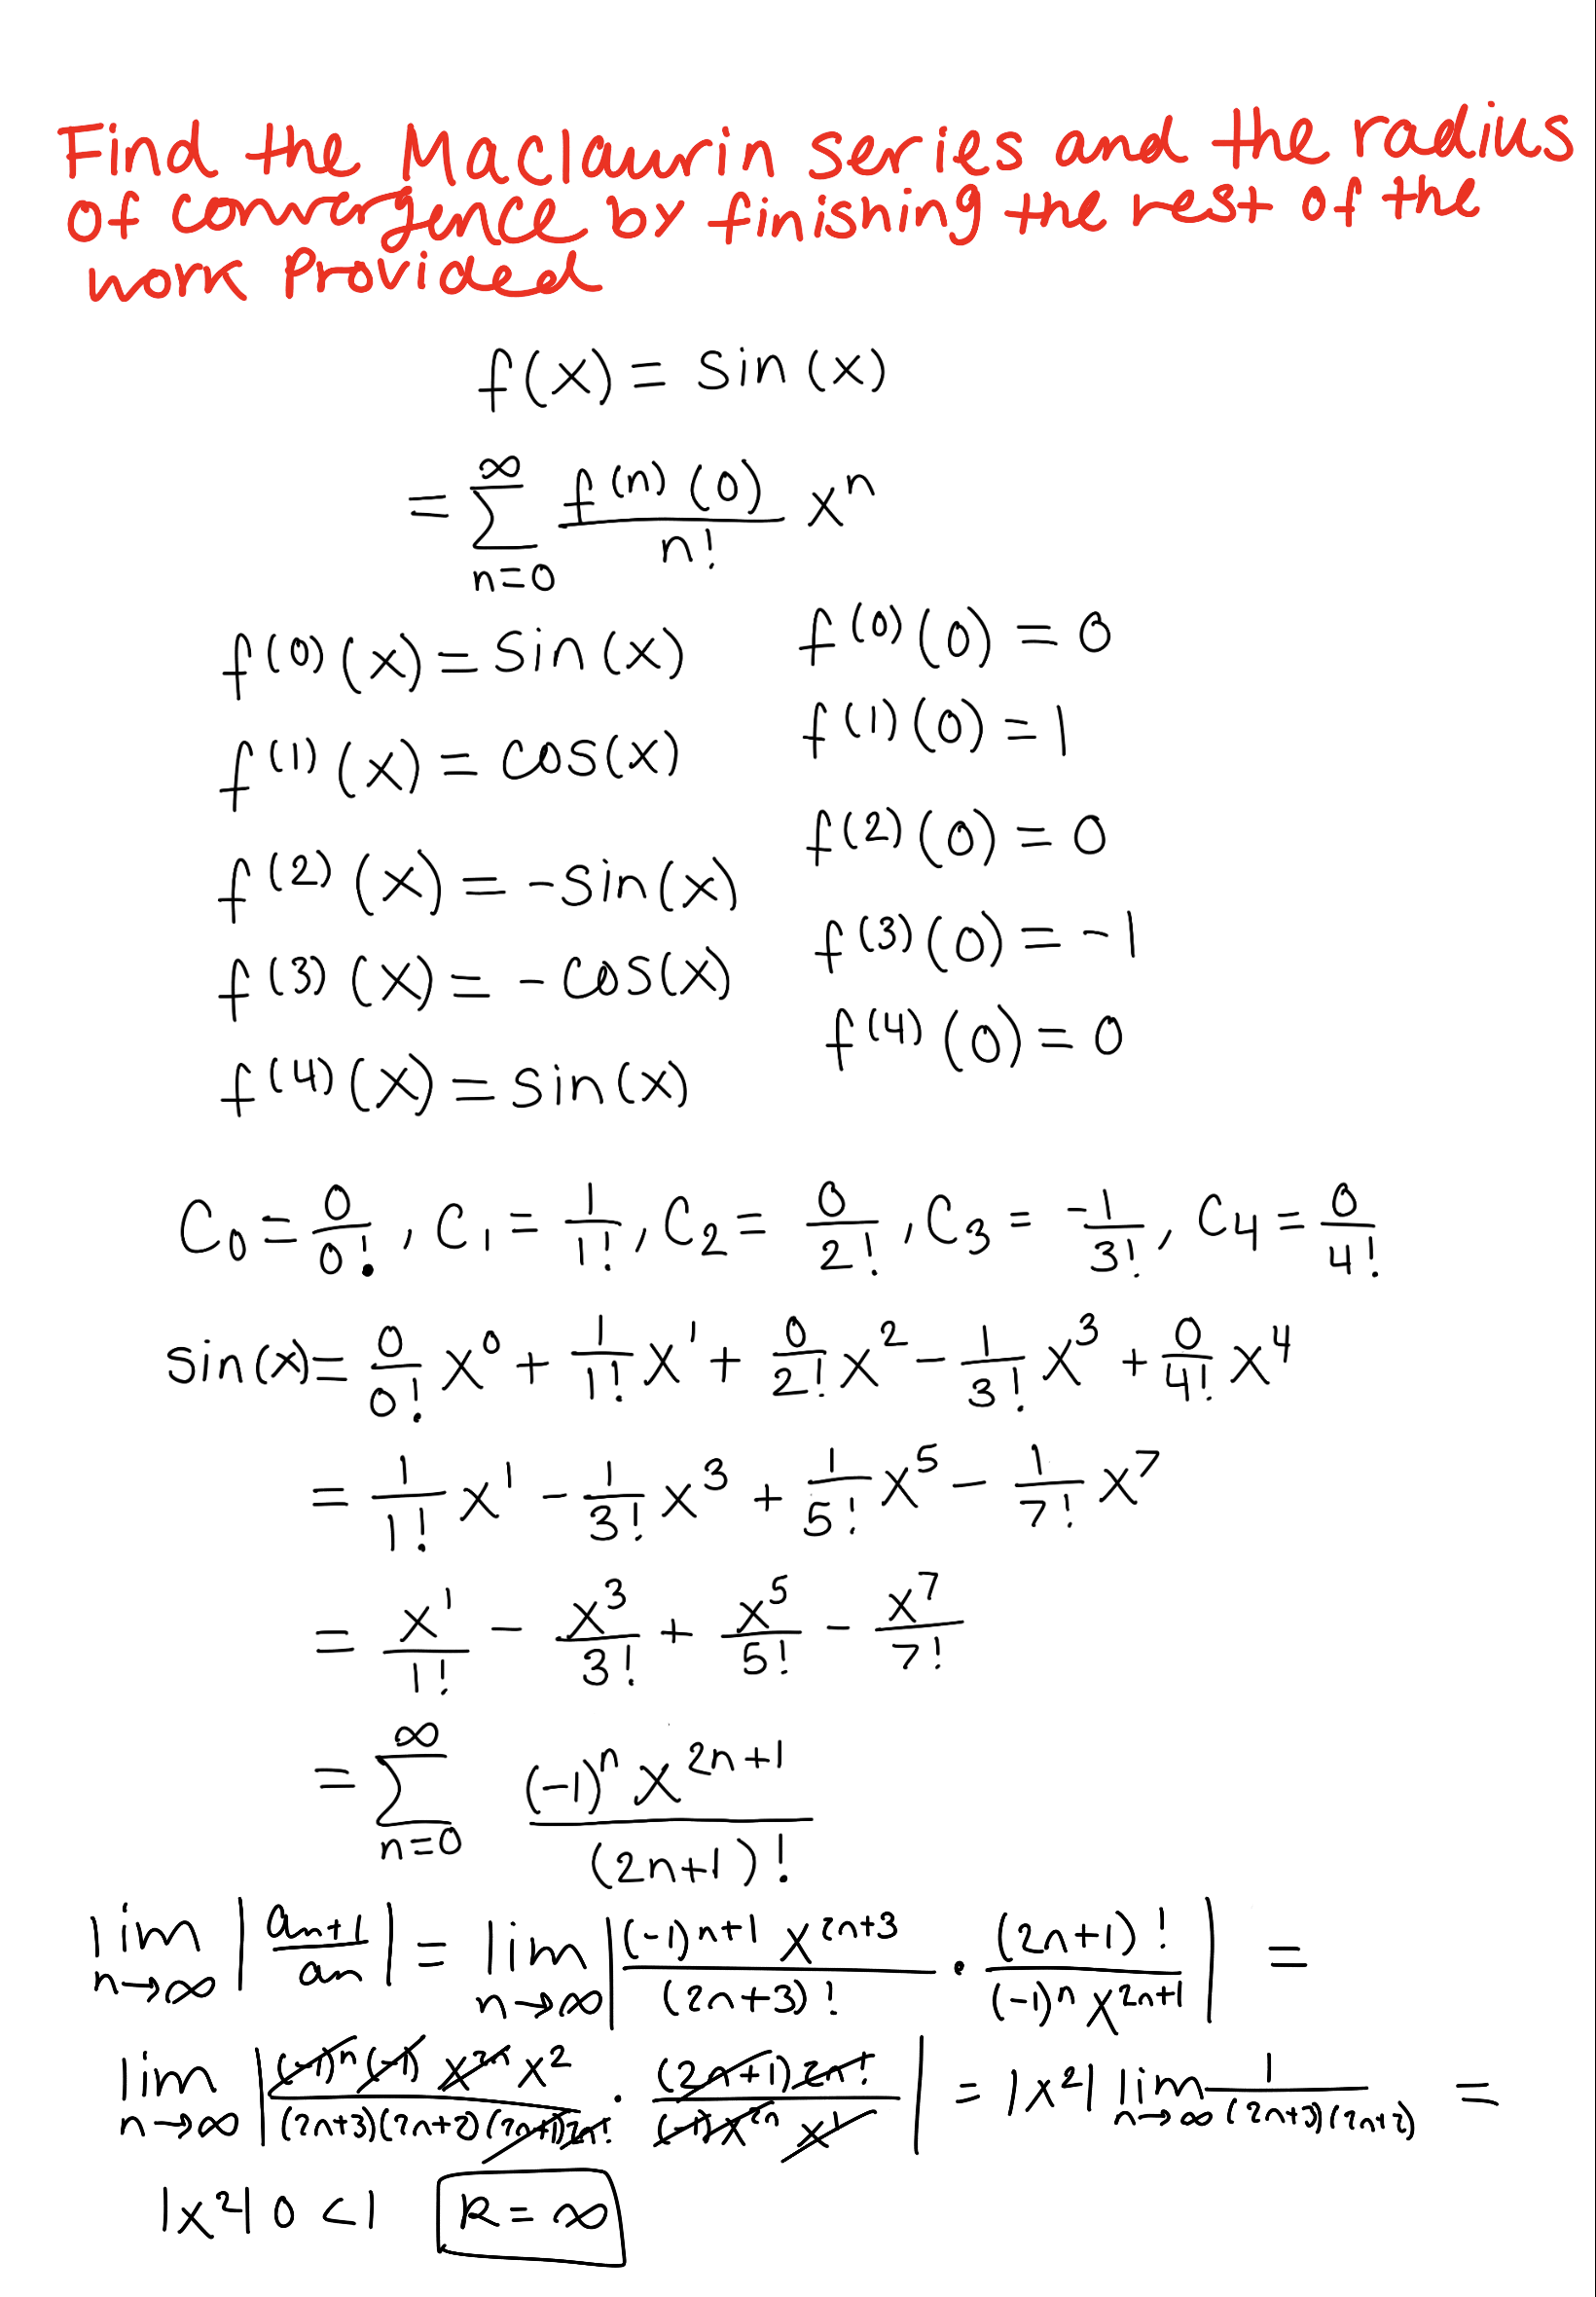 Find the Maclaurin series and the radius
of convergence by finishing the rest of the
work Provided
f(x) = Sin(x)
= ∑_{n=0}^{∞} f^{(n)}(0)/n! x^n
f^{(0)}(x) = Sin(x) f^{(0)}(0) = 0
f^{(1)}(x) = cos(x) f^{(1)}(0) = 1
f^{(2)}(x) = -Sin(x) f^{(2)}(0) = 0
f^{(3)}(x) = -cos(x) f^{(3)}(0) = -1
f^{(4)}(x) = Sin(x) f^{(4)}(0) = 0
C_0 = 0/0!, C_1 = 1/1!, C_2 = 0/2!, C_3 = -1/3!, C_4 = 0/4!
Sin(x) = 0/0! x^0 + 1/1! x^1 + 0/2! x^2 - 1/3! x^3 + 0/4! x^4
= 1/1! x^1 - 1/3! x^3 + 1/5! x^5 - 1/7! x^7
= x^1/1! - x^3/3! + x^5/5! - x^7/7!
= ∑_{n=0}^{∞} (-1)^n x^{2n+1}/(2n+1)!
lim_{n→∞} |a_{n+1}/a_n| = lim_{n→∞} |(-1)^{n+1} x^{2n+3}/(2n+3)! · (2n+1)!/(-1)^n x^{2n+1}| =
lim_{n→∞} |(-1)^n (-1) x^{2n} x^2/(2n+3)(2n+2)(2n+1)2n! · (2n+1)2n!/(-1) x^{2n} x^1| = |x^2| lim_{n→∞} 1/(2n+3)(2n+2) =
|x^2| 0 < 1 R = ∞